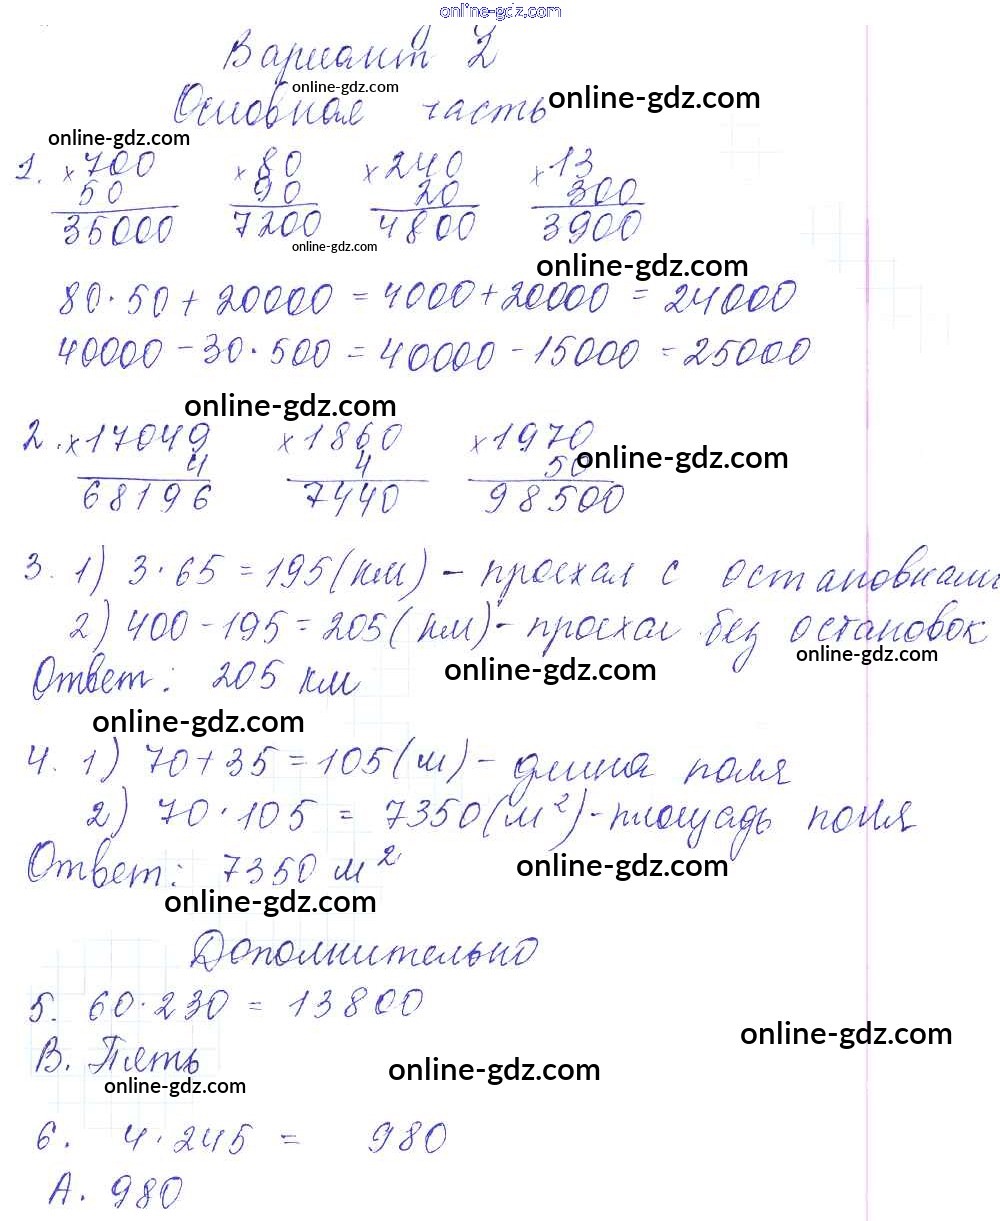 online-gdz.com
Вариант 2
online-gdz.com
Основная часть online-gdz.com
online-gdz.com
1. × 700 × 80 × 240 × 13
50 90 20 300
35000 7200 4800 3900
online-gdz.com
online-gdz.com
80·50 + 20000 = 4000 + 20000 = 24000
40000 - 30·500 = 40000 - 15000 = 25000
online-gdz.com
2. × 17049 × 1860 × 1970
4 4 50 online-gdz.com
68196 7440 98500
3. 1) 3·65 = 195 (км) - проехал с остановками
2) 400 - 195 = 205 (км) - проехал без остановок
online-gdz.com
Ответ: 205 км online-gdz.com
online-gdz.com
4. 1) 70 + 35 = 105 (м) - длина поля
2) 70·105 = 7350 (м²) - площадь поля
Ответ: 7350 м² online-gdz.com
online-gdz.com
Дополнительно
5. 60·230 = 13800
online-gdz.com
В. Пять online-gdz.com
online-gdz.com
6. 4·245 = 980
А. 980